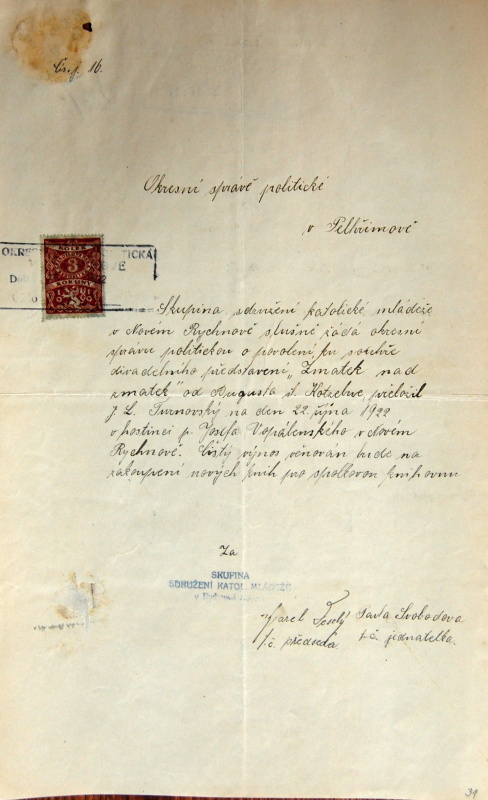 Čís. j. 16.
Okresní správě politické
v Pelhřimově
KOLEK
3
KORUNY
OKRES
TICKÁ
Skupina sdružení katolické mládeže
v Novém Rychnově slušně žádá okresní
správu politickou o povolení ku sehře
divadelního představení „Zmatek nad
zmatek" od Augusta z Kotzebue, přeložil
J. L. Turnovský na den 22. října 1922
v hostinci p. Josefa Vopálenského v Novém
Rychnově. Čistý výnos věnován bude na
zakoupení nových knih pro spolkovou knihovnu
Za
SKUPINA
SDRUŽENÍ KATOL. MLÁDEŽE
Karel Veselý
t.č. předseda
Svobodova
t.č. jednatelka.
31